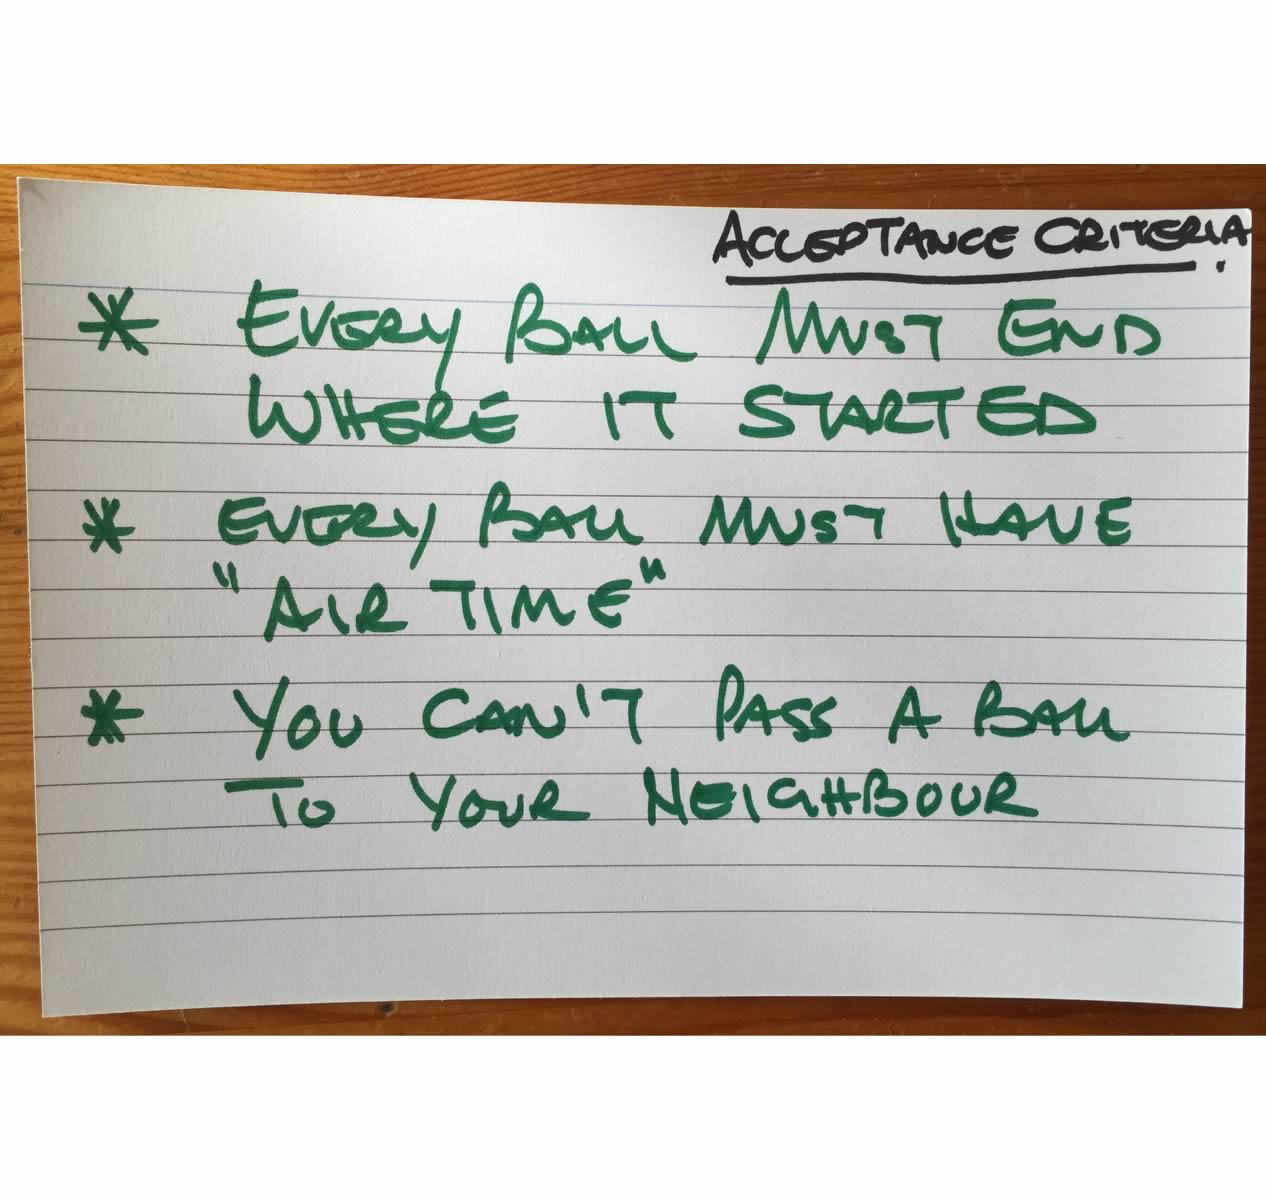 ACCEPTANCE CRITERIA.
* EVERY BALL MUST END
WHERE IT STARTED
* EVERY BALL MUST HAVE
"AIR TIME"
* YOU CAN'T PASS A BALL
TO YOUR NEIGHBOUR